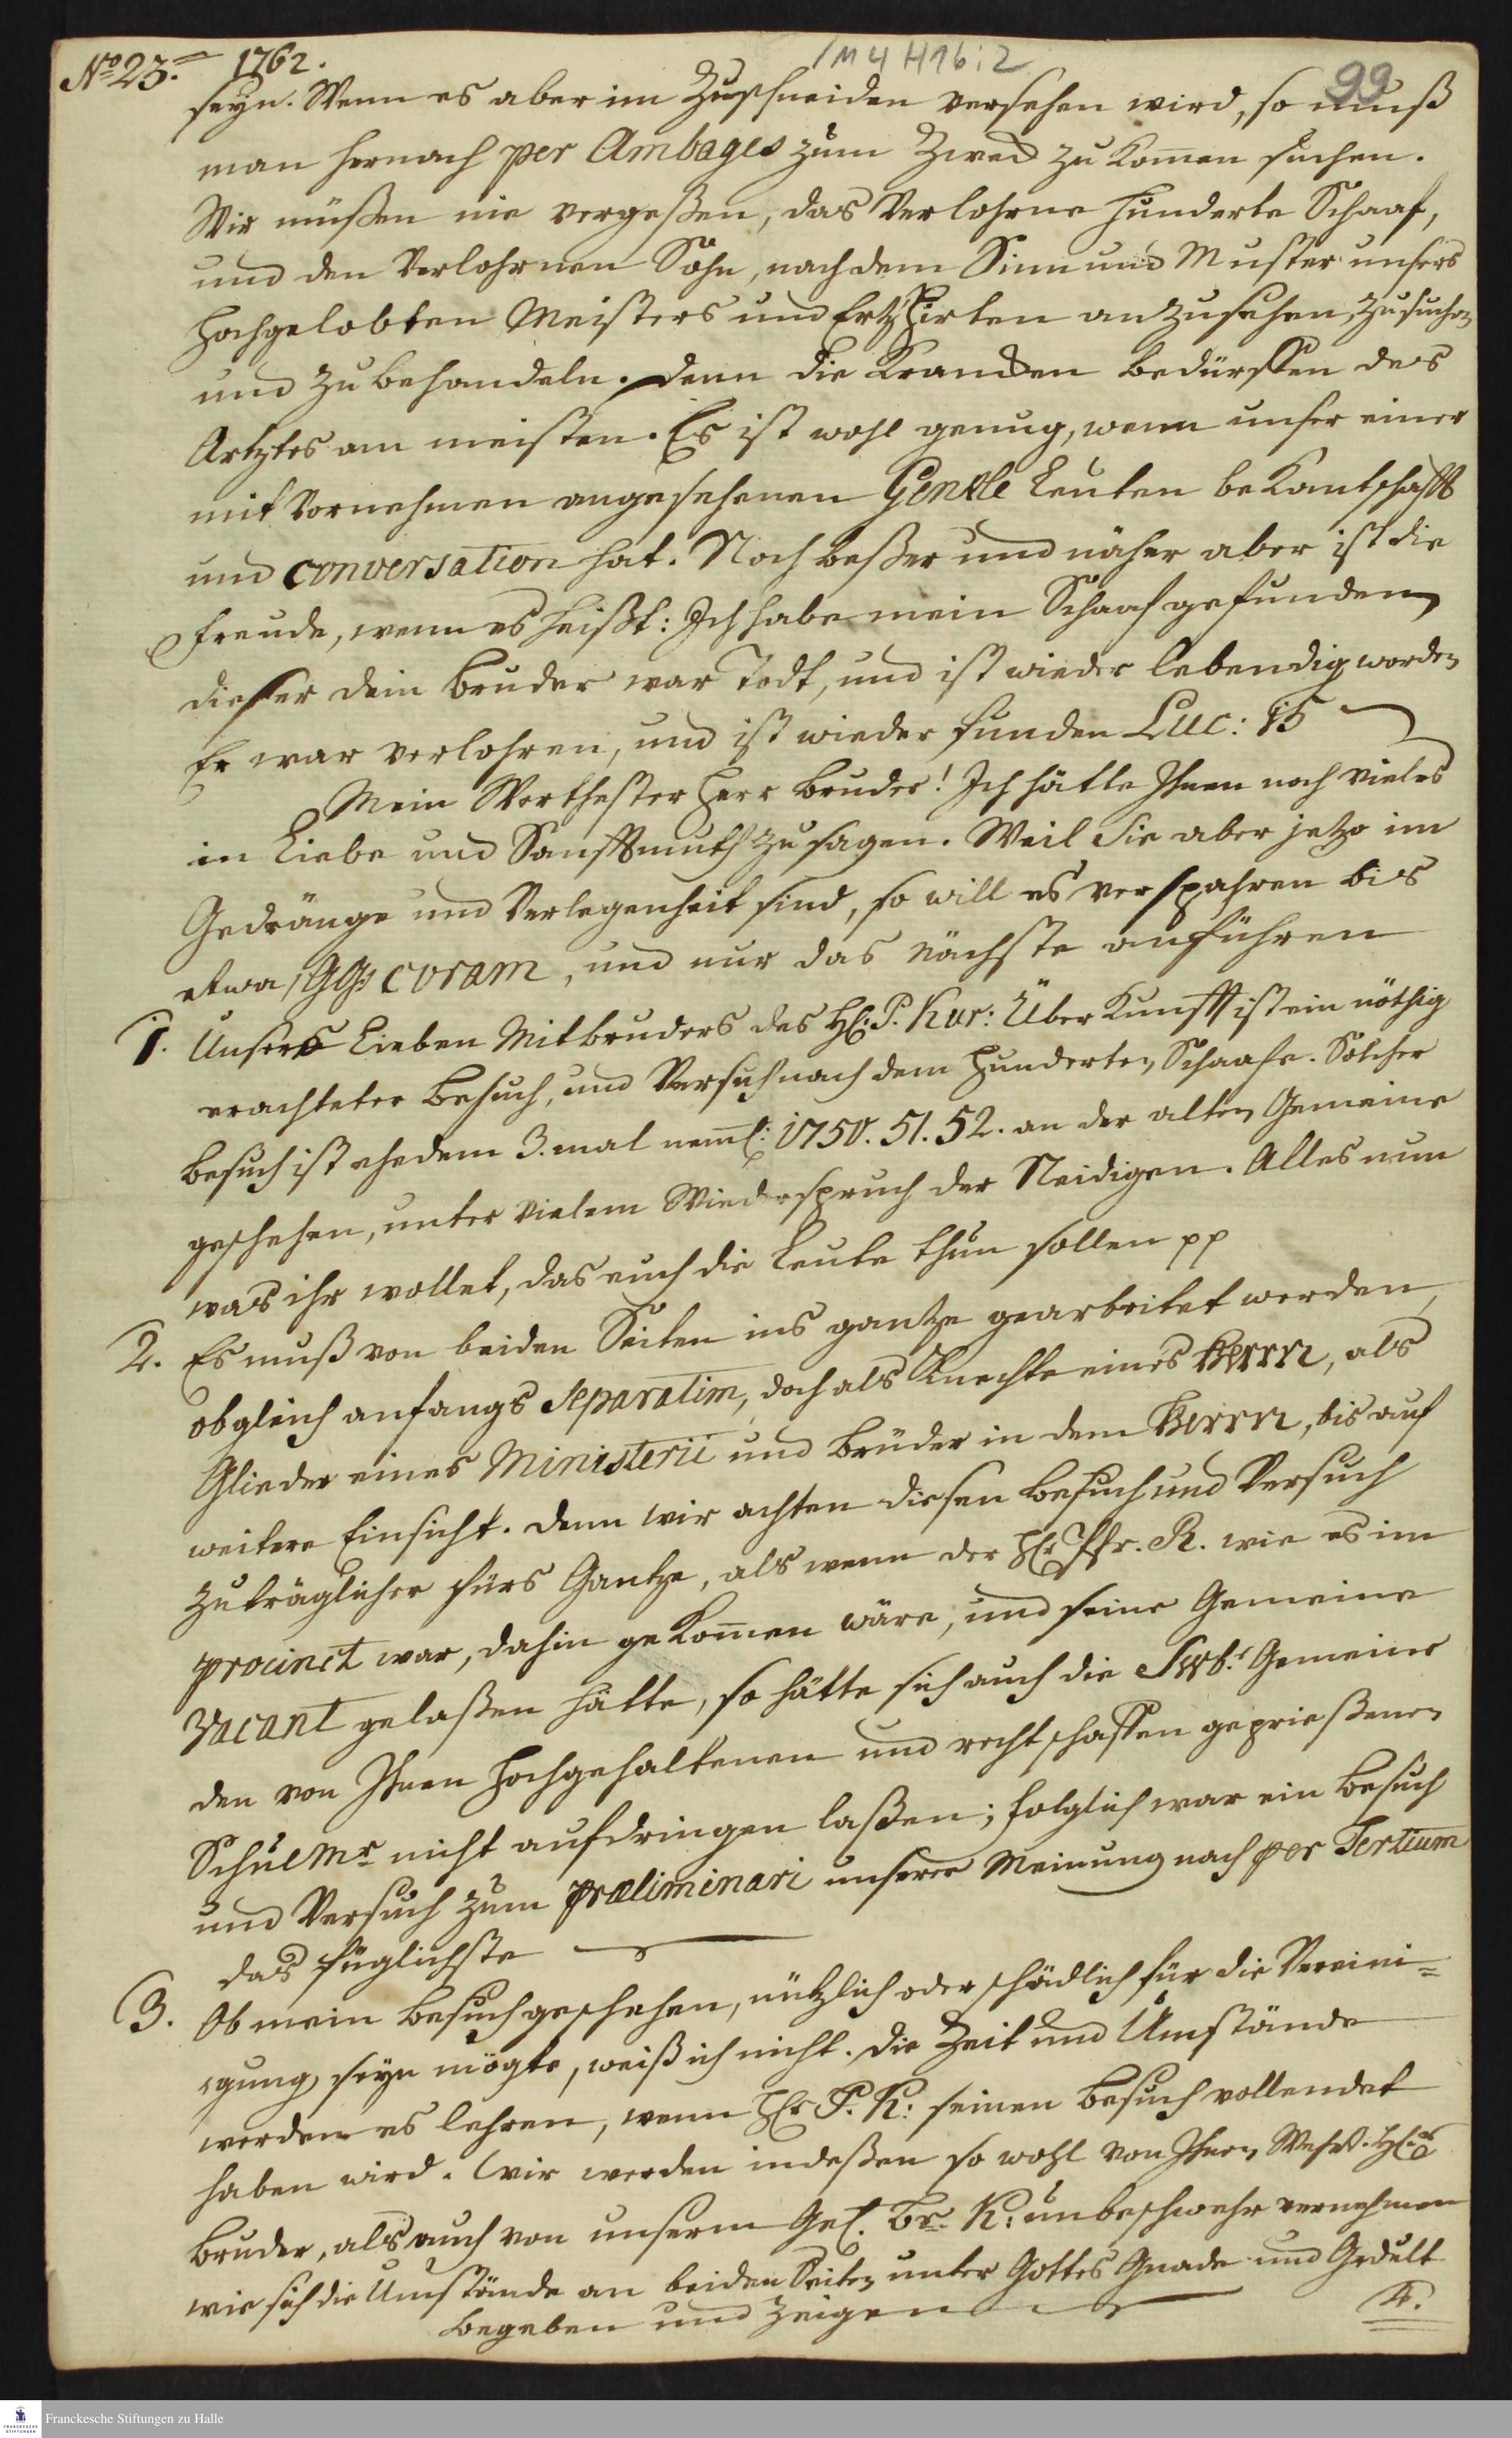 No 23. 1762.
1M 4 H16:2
99
seyn. Wenn es aber im Zuschneiden versehen wird, so muß
man hernach per Ambages zum Zweck zu kom̅en suchen.
Wir müßen nie vergeßen, das Verlohrne hunderte Schaaf,
und den Verlohrnen Sohn, nach dem Sinn und Muster unsers
Hochgelobten Meisters und Ertzhirten anzusehen, zu suchen
und zu behandeln. Denn die Krancken bedürffen des
Artztes am meisten. Es ist wohl genug, wenn unser einer
mit Vornehmen angesehenen Gentle Leuten bekantschafft
und conversation hat. Noch beßer und näher aber ist die
Freude, wenn es heißt: Ich habe mein Schaaf gefunden,
dießer dein Bruder war Todt, und ist wieder lebendig worden
Er war verlohren, und ist wieder funden Luc: 15
Mein Werthester Herr Bruder! Ich hätte Ihnen noch vieles
in Liebe und Sanfftmuth zu sagen. Weil Sie aber jetzo im
Gedränge und Verlegenheit sind, so will es verspahren bis
etwa, GG, coram, und nur das nächste anführen
1. Unsers Lieben Mitbruders des H: P. Kur: Überkunfft ist ein nöthig
erachteter Besuch, und Versuch nach dem Hunderten Schaafe. Solcher
Besuch ist ehedem 3. mal neml: 1750. 51. 52. an der alten Gemeine
geschehen, unter vielem Wiederspruch der Neidigen. Alles nun
was ihr wollet, das euch die Leute thun sollen pp
2. Es muß von beiden Seiten ins gantze gearbeitet werden,
obgleich anfangs Separatim, doch als Knechte eines Herrn, als
Glieder eines Ministerii und Brüder in dem Herrn, bis auf
weitere Einsicht. Denn wir achten diesen Besuch und Versuch
zuträglicher fürs Gantze, als wenn der H: Pfr. R. wie es im
procinct war, dahin gekom̅en wäre, und seine Gemeine
Vacant gelaßen hätte, so hätte sich auch die Gemeine
den von Ihnen Hochgehaltenen und rechtschaffen geprießenen
SchulMr nicht aufdringen laßen; folglich war ein Besuch
und Versuch zum præliminari unserer Meinung nach per Tertium
das füglichste
3. Ob mein Besuch geschehen, nützlich oder schädlich für die Vereini=
gung, seyn mögte, weiß ich nicht. Die Zeit und Umstände
werden es lehren, wenn H: P. K: seinen Besuch vollendet
haben wird. Wir werden indeßen so wohl von Ihnen,
Bruder, als auch von unserm Gel. Br. K: unbeschwehr vernehmen
wie sich die Umstände an beiden Seiten unter Gottes Gnade und Gedult
begeben und zeigen
4.
Franckesche Stiftungen zu Halle